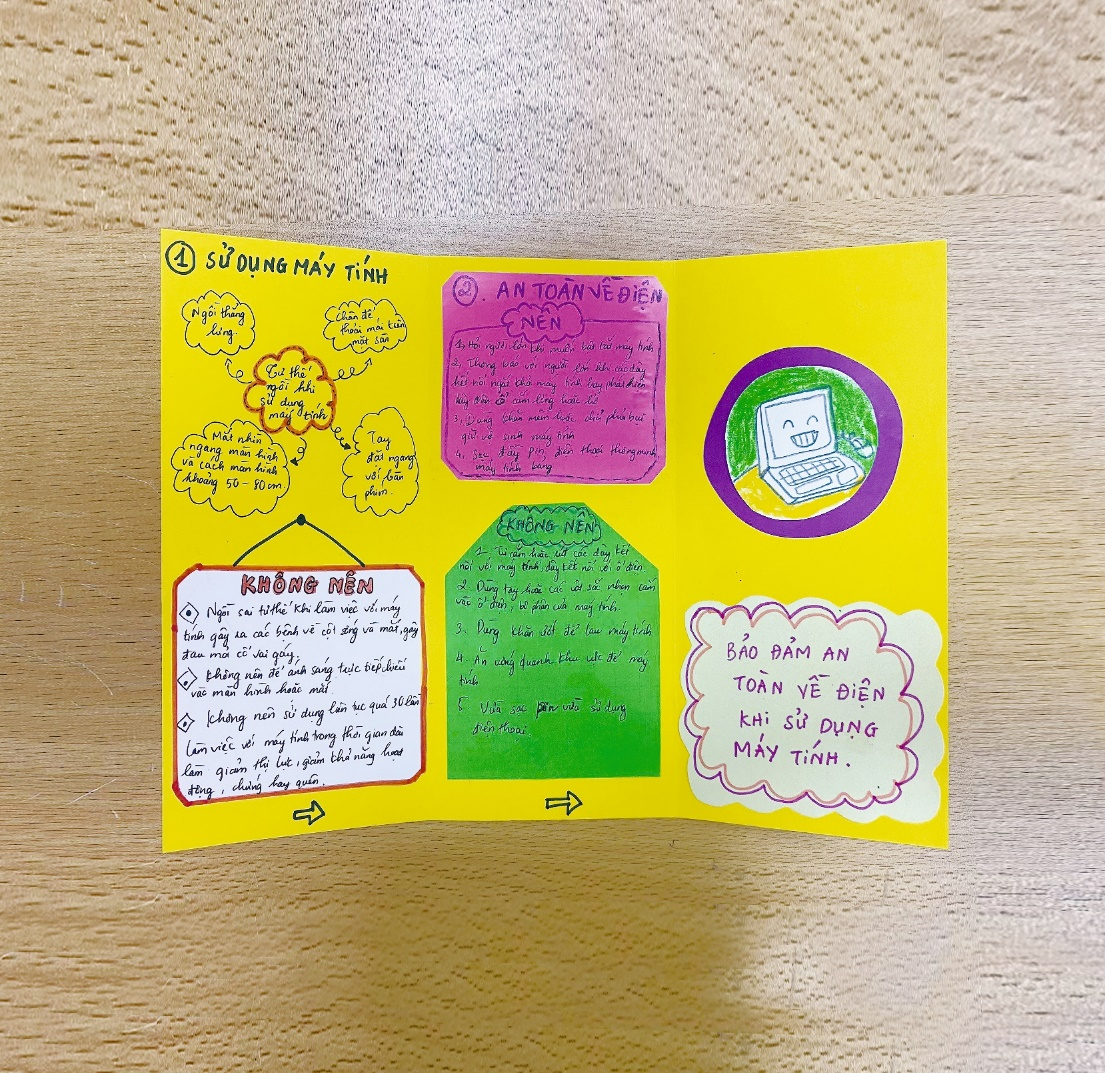 1 SỬ DỤNG MÁY TÍNH
Ngồi thẳng
lưng.
Chân để
thoải mái trên
mặt sàn
Tư thế
ngồi khi
sử dụng
máy tính
Mắt nhìn
ngang màn hình
và cách màn hình
khoảng 50 - 80 cm.
Tay
đặt ngang
với bàn
phím.
KHÔNG NÊN
Ngồi sai tư thế khi làm việc với máy
tính gây ra các bệnh về cột sống và mắt, gây
đau mỏi cổ vai gáy.
Không nên để ánh sáng trực tiếp chiếu
vào màn hình hoặc mắt
Không nên sử dụng liên tục quá 30 lần
làm việc với máy tính trong thời gian dài
làm giảm thị lực, giảm khả năng hoạt
động, chứng hay quên.
2. AN TOÀN VỀ ĐIỆN
NÊN
1, Hỏi người lớn khi muốn bật tắt máy tính
2, Thông báo với người lớn khi các dây
kết nối ngoài khỏi máy tính hay phát hiện
dây điện, ổ cắm lỏng hoặc hở
3, Dùng khăn mềm hoặc chổi phủi bụi
giữ vệ sinh máy tính
4, Sạc đầy pin, điện thoại thông minh,
máy tính bảng
KHÔNG NÊN
1. Tự cắm hoặc rút các dây kết
nối với máy tính, dây kết nối với ổ điện
2. Dùng tay hoặc các vật sắc nhọn cắm
vào ổ điện, bộ phận của máy tính.
3. Dùng khăn ướt để lau máy tính
4. Ăn uống quanh khu vực để máy
tính
5. Vừa sạc pin vừa sử dụng
điện thoại.
BẢO ĐẢM AN
TOÀN VỀ ĐIỆN
KHI SỬ DỤNG
MÁY TÍNH.